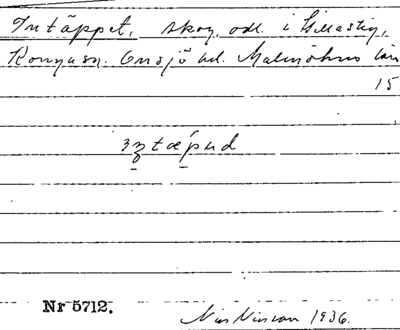 Intäppet, skog, odl. i Gillastig,
Konga sn. Onsjö hd. Malmöhus län
15
Nr 5712. Nils Nilsson 1936.